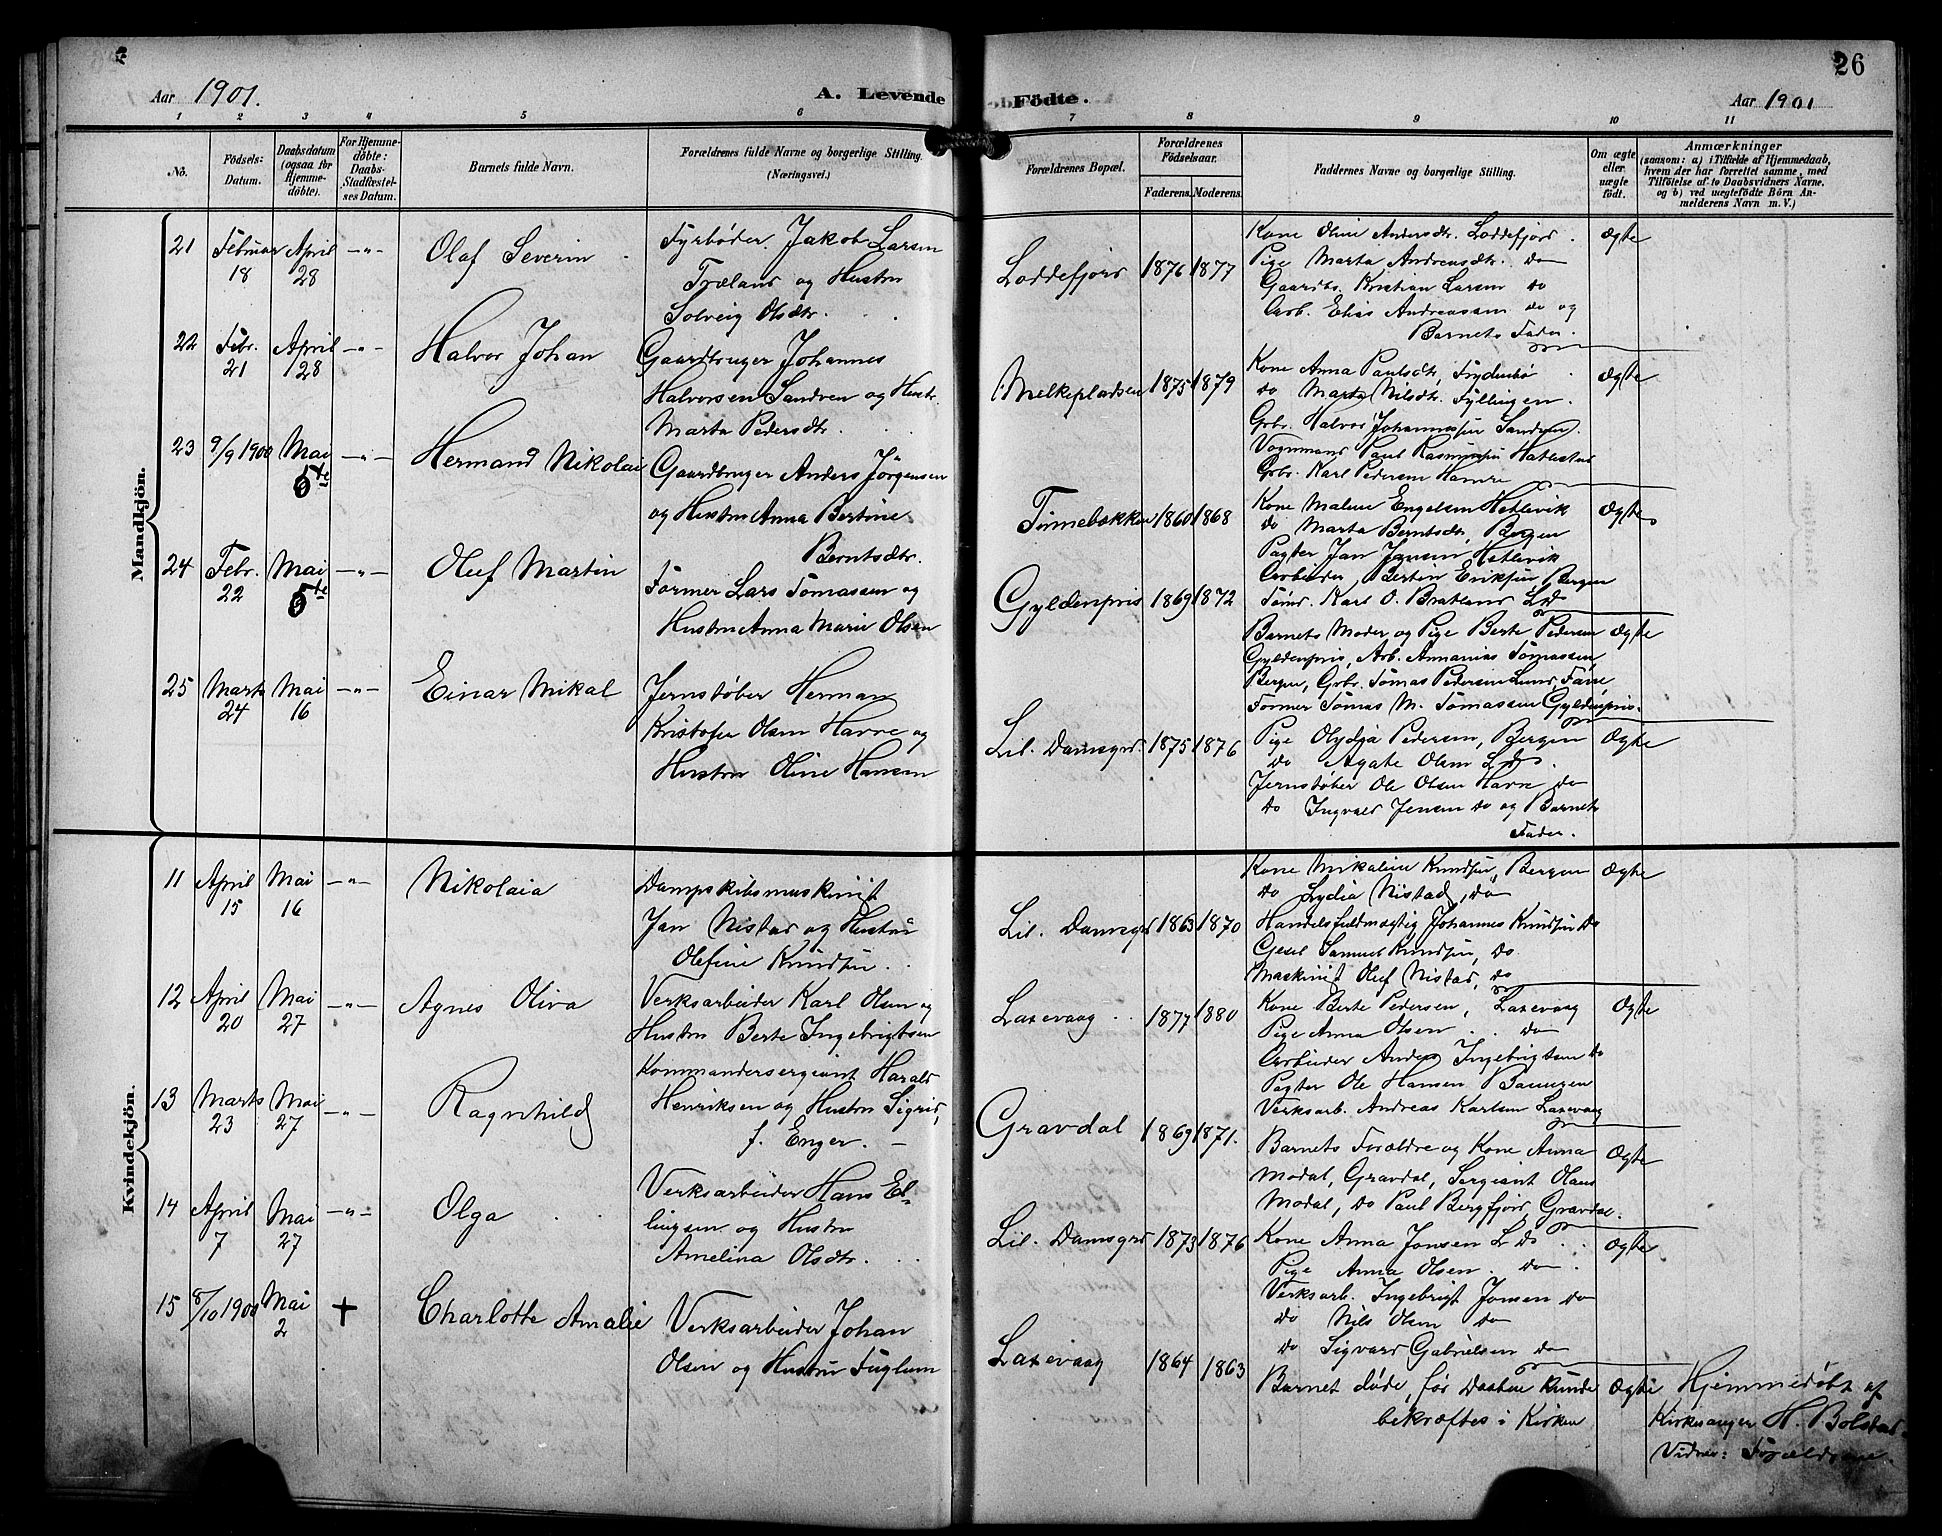 26
Aar 1901. A. Levende Födte. Aar 1901
1 2 3 4 5 6 7 8 9 10 11
No.
Födsels-Datum.
Daabsdatum (ogsaa for Hjemmedöbte).
For Hjemmedöbte: Daabs-Stadfæstelses Datum.
Barnets fulde Navn.
Forældrenes fulde Navne og borgerlige Stilling.
(Næringsvei.)
Forældrenes Bopæl.
Forældrenes Födselsaar.
Faderens. Moderens.
Faddernes Navne og borgerlige Stilling.
Om ægte eller uægte födt.
Anmærkninger
(saasom: a) i Tilfælde af Hjemmedaab,
hvem der har forrettet samme, med
Tilföielse af to Daabsvidners Navne,
og b) ved uegtefödte Börn Anmelderens Navn m. V.)
Mandkjön.
21 Februar 18 April 28 -"- Olaf Severin
Fyrbøder Jakob Larsen
Træland og Hustru
Solveig Olsdtr.
Loddefjord 1876 1877
Kone Oline Andersdtr. Loddefjord
Pige Marta Andreasdtr. do
Gaardbr. Kristian Larsen do
Arb. Elias Andreassen do og
Barnets Fader.
Ægte
22 Febr. 21 April 28 -"- Halvor Johan
Gaardbruger Johannes
Halvorsen Sandven og Hustr.
Marta Pedersdtr.
Melkepladsen 1875 1879
Kone Anna Paulsdtr, Frydenbø
do Marta Nilsdtr. Fyllingen.
Gbr. Halvor Johannessen Sandven.
Vognmand Paul Rasmussen Hatlestad
Gbr. Karl Pedersen Hamre
Ægte
23 9/9 1900 Mai 5te -"- Hermand Nikolai
Gaardbruger Anders Jörgensen
og Hustru Anna Bertine
Berntsdtr.
Tinnebakken 1860 1868
Kone Malene Engelsen Hetlevik
do Marta Berntsdtr, Bergen
Pagter Jan Jansen Hetlevik
Arbeider, Bertin Eriksen Bergen
Tömr. Karl O. Bratland L. D.
Ægte
24 Febr. 22 Mai 5te -"- Oluf Martin
Former Lars Tomassen og
Hustru Anna Marie Olsen
Gyldenpris 1869 1872
Barnets Moder og Pige Berte Pedersen
Gyldenpris, Arb. Annanias Tomassen,
Bergen, Gbr. Tomas Pedersen Lund Færre
Former Tomas M. Tomassen Gyldenpris.
Ægte
25 Marts 24 Mai 16 -"- Einar Mikal
Jernstøber Herman
Kristofer Olsen Havre og
Hustru Oline Hansen
Lil. Damsgrd. 1875 1876
Pige Olydja Pedersen, Bergen
do Agate Olsen L. D.
Jernstøber Ole Olsen Havre do
do Ingvald Jensen do og Barnets
Fader.
Ægte
Kvindekjön.
11 April 15 Mai 16 -"- Nikolaia
Dampskibsmaskinist
Jan Nistad og Hustru
Olefine Knudsen
Lil. Damsgrd 1863 1870
Kone Mikaline Knudsen, Bergen
do Lydia Nistad, do
Handelsfuldmægtig Johannes Knudsen do
Gesel Samuel Knudsen, do
Maskinist Oluf Nistad, do
Ægte
12 April 20 Mai 27 -"- Agnes Oliva
Verksarbeider Karl Olsen og
Hustru Berte Ingebrigtsen
Laxevaag 1877 1880
Kone Berte Pedersen, Laxevaag
Pige Anna Olsen do
Arbeider Anders Ingebrigtsen do
Pagter Ole Hansen Baungen
Verksarb. Andreas Karlsen Laxevaag
Ægte
13 Marts 23 Mai 27 -"- Ragnhild
Kommandersergiant Harald
Henriksen og Hustru Sigrid,
f. Enger.
Gravdal 1869 1871.
Barnets Forældre og Kone Anna
Modal, Gravdal, Sergiant Olaus
Modal, do Paul Bergfjord, Gravdal.
Ægte
14 April 7 Mai 27 -"- Olga
Verksarbeider Hans El-
lingsen og Hustru
Amelina Olsdtr.
Lil. Damsgrd 1873 1876
Kone Anna Jonsen L. D.
Pige Anna Olsen do
Verksarb. Ingebrigt Jonsen do
do Nils Olsen do
do Sigvard Gabrielsen do
Ægte
15 8/10 1900 Mai 2 + Charlotte Amalie
Verksarbeider Johan
Olsen og Hustru Fuglum
Laxevaag 1864 1863
Barnet døde, før Daaben kunde
bekræftes i Kirken
Ægte
Hjemmedøbt af
Kirkesanger H. Bolstad.
Vidner: Forældrene.